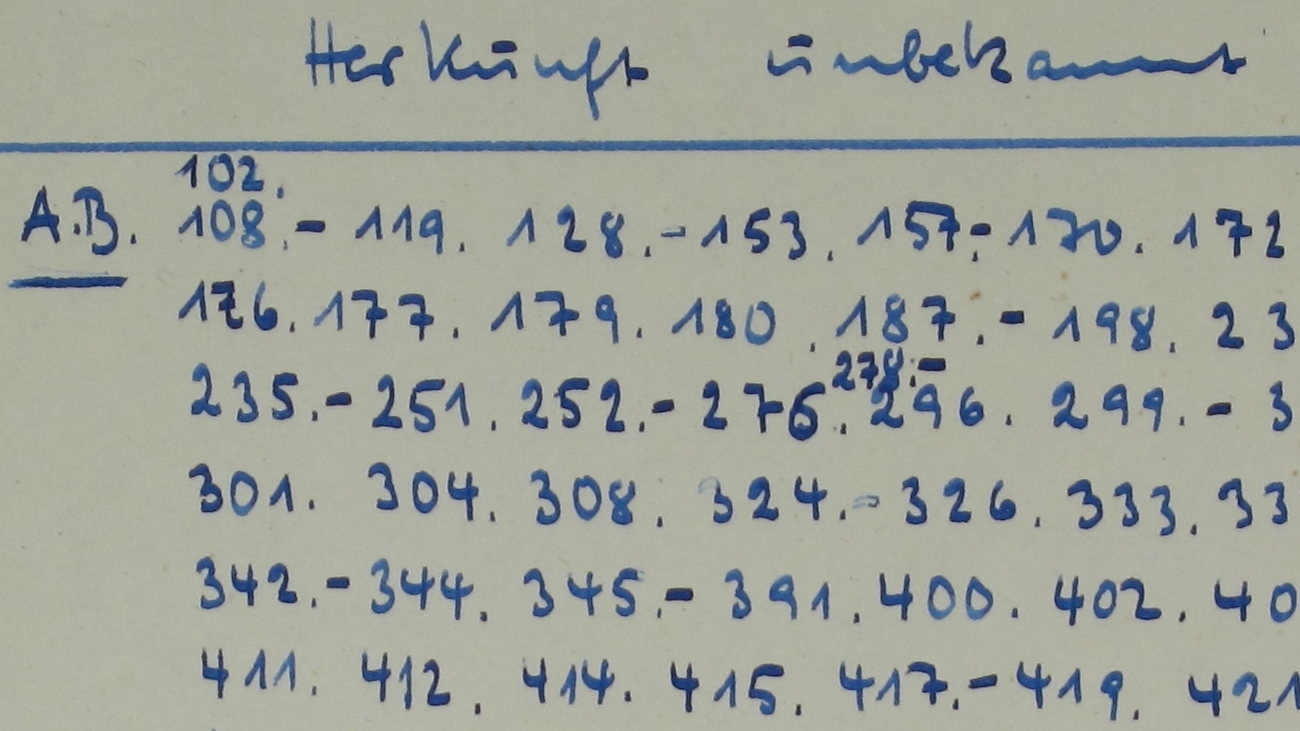 Herkunft unbekannt
102.
A.B. 108.- 119. 128.- 153. 157.- 170. 172
176. 177. 179. 180. 187.- 198. 23
278.-
235.- 251. 252.- 276. 296. 299.- 3
301. 304. 308. 324.- 326. 333. 33
342.- 344. 345.- 391. 400. 402. 40
411. 412. 414. 415. 417.- 419. 421